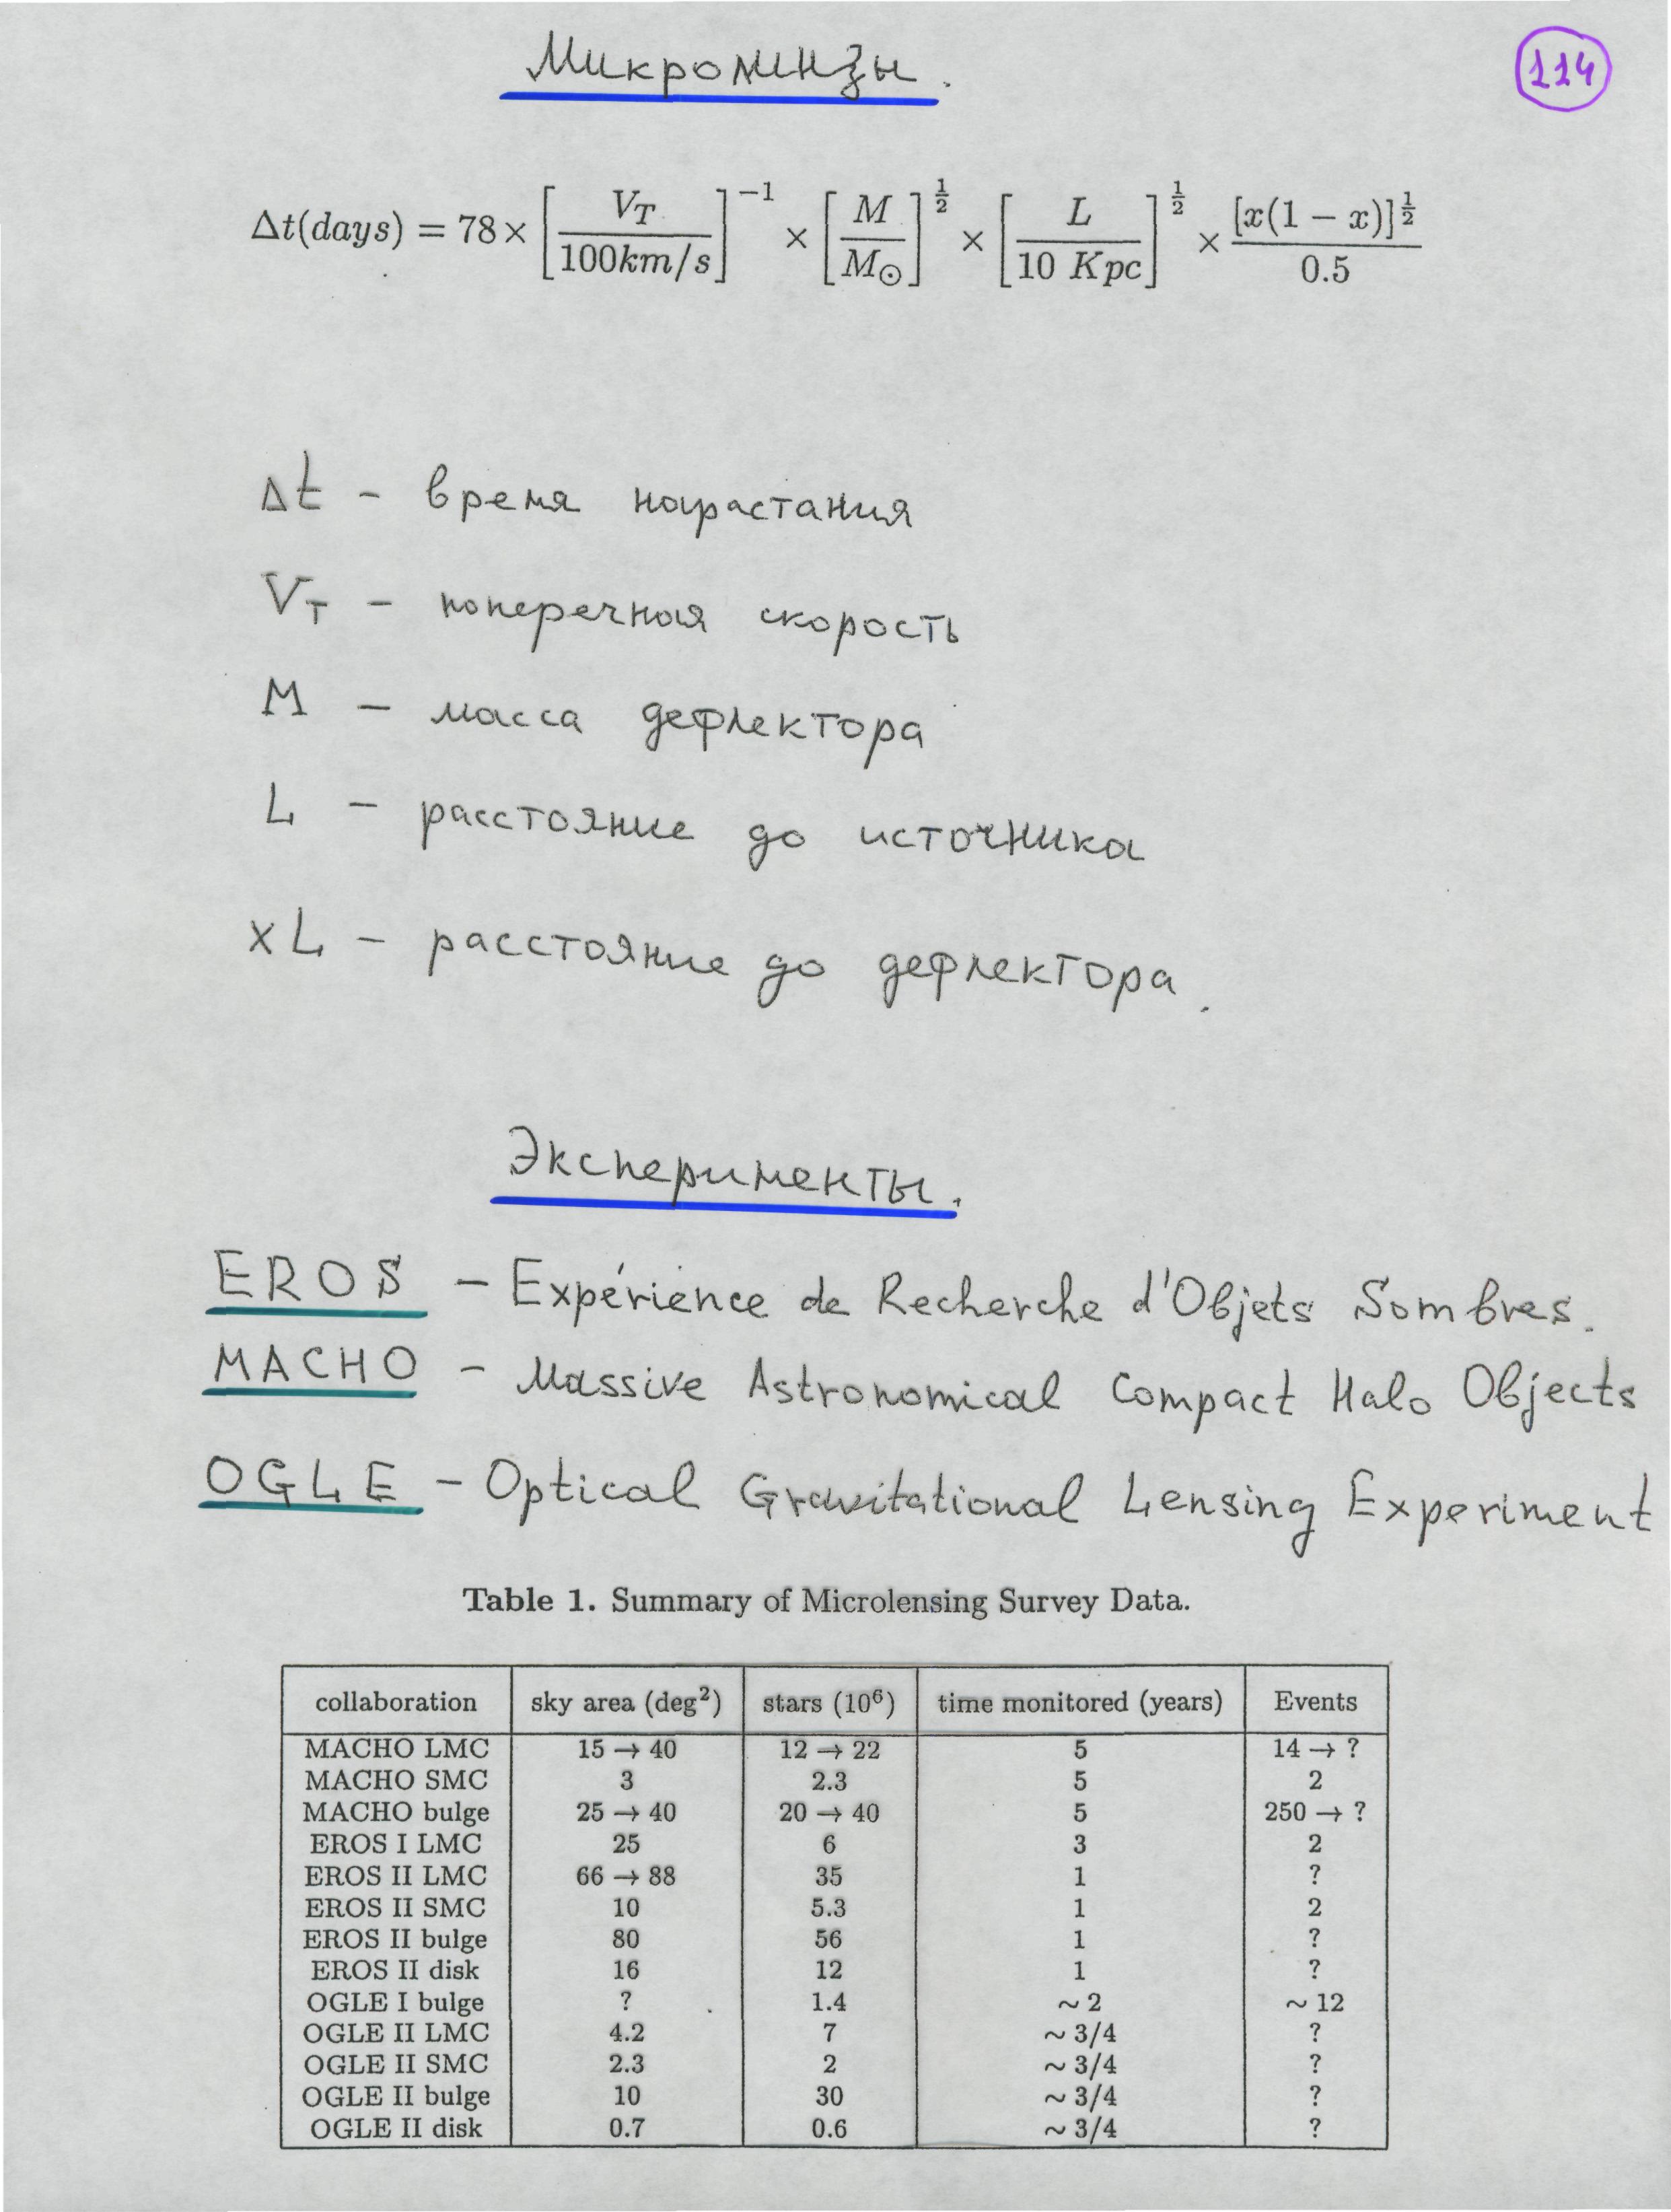 Микролинзы.
114
Δt(days) = 78 × [V_T / 100km/s]^{-1} × [M / M_⊙]^{1/2} × [L / 10 Kpc]^{1/2} × [x(1 − x)]^{1/2} / 0.5
Δt – время нарастания
V_T – поперечная скорость
M – масса дефлектора
L – расстояние до источника
xL – расстояние до дефлектора.
Эксперименты.
EROS – Expérience de Recherche d'Objets Sombres.
MACHO – Massive Astronomical Compact Halo Objects
OGLE – Optical Gravitational Lensing Experiment
Table 1. Summary of Microlensing Survey Data.
collaboration sky area (deg²) stars (10⁶) time monitored (years) Events
MACHO LMC 15 → 40 12 → 22 5 14 → ?
MACHO SMC 3 2.3 5 2
MACHO bulge 25 → 40 20 → 40 5 250 → ?
EROS I LMC 25 6 3 2
EROS II LMC 66 → 88 35 1 ?
EROS II SMC 10 5.3 1 2
EROS II bulge 80 56 1 ?
EROS II disk 16 12 1 ?
OGLE I bulge ? 1.4 ~ 2 ~ 12
OGLE II LMC 4.2 7 ~ 3/4 ?
OGLE II SMC 2.3 2 ~ 3/4 ?
OGLE II bulge 10 30 ~ 3/4 ?
OGLE II disk 0.7 0.6 ~ 3/4 ?